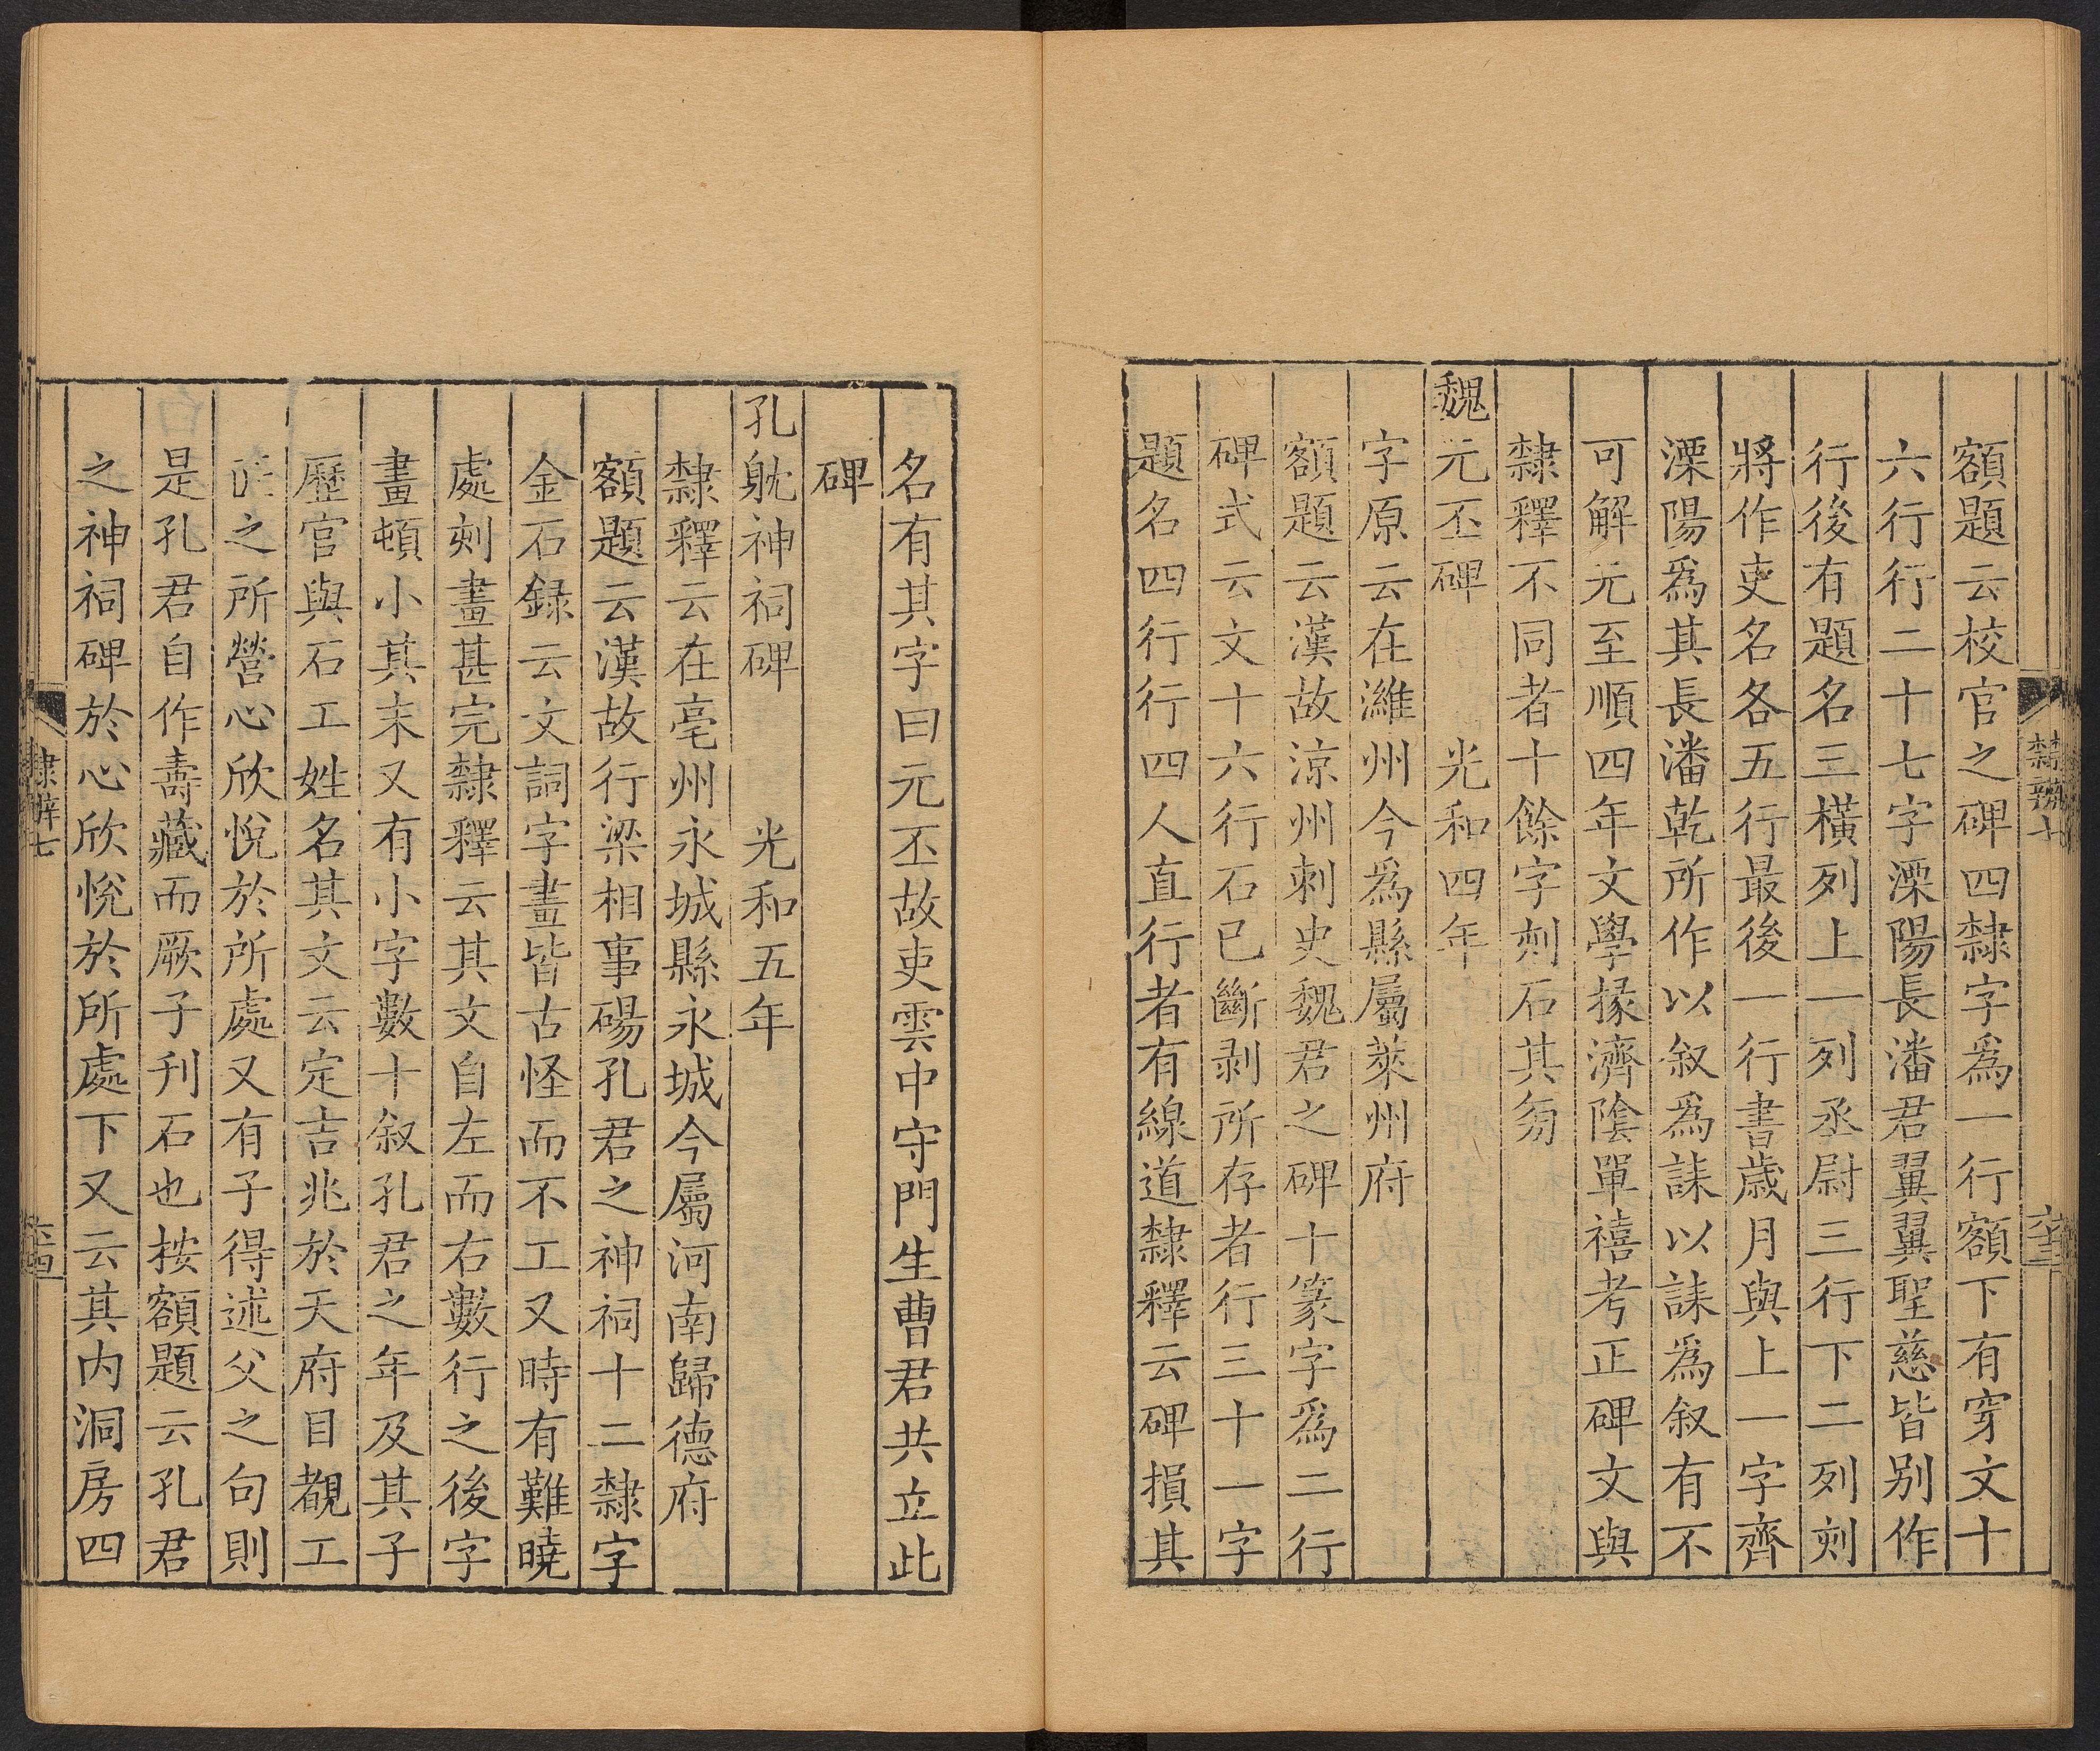 額題云校官之碑四隸字爲一行額下有穿文十
六行行二十七字溧陽長潘君翼翼聖慈皆别作
行後有題名三橫列上一列丞尉三行下二列刻
將作吏名各五行最後一行書歲月與上一字齊
溧陽爲其長潘乾所作以叙爲誄以誄爲叙有不
可解元至順四年文學掾濟陰單禧考正碑文與
隸釋不同者十餘字刻石其旁
魏元丕碑 光和四年
字原云在濰州今爲縣屬萊州府
額題云漢故涼州刺史魏君之碑十篆字爲二行
碑式云文十六行石已斷剥所存者行三十一字
題名四行行四人直行者有線道隸釋云碑損其
名有其字曰元丕故吏雲中守門生曹君共立此
碑
孔躭神祠碑 光和五年
隸釋云在亳州永城縣永城今屬河南歸德府
額題云漢故行梁相事碭孔君之神祠十二隸字
金石録云文詞字畫皆古怪而不工又時有難曉
處刻畫甚完隸釋云其文自左而右數行之後字
畫頓小其末又有小字數十叙孔君之年及其子
歷官與石工姓名其文云定吉兆於天府目覩工
之所營心欣悅於所處又有子得述父之句則
是孔君自作壽藏而厥子刊石也按額題云孔君
之神祠碑於心欣悅於所處下又云其内洞房四
隸辨七
六四